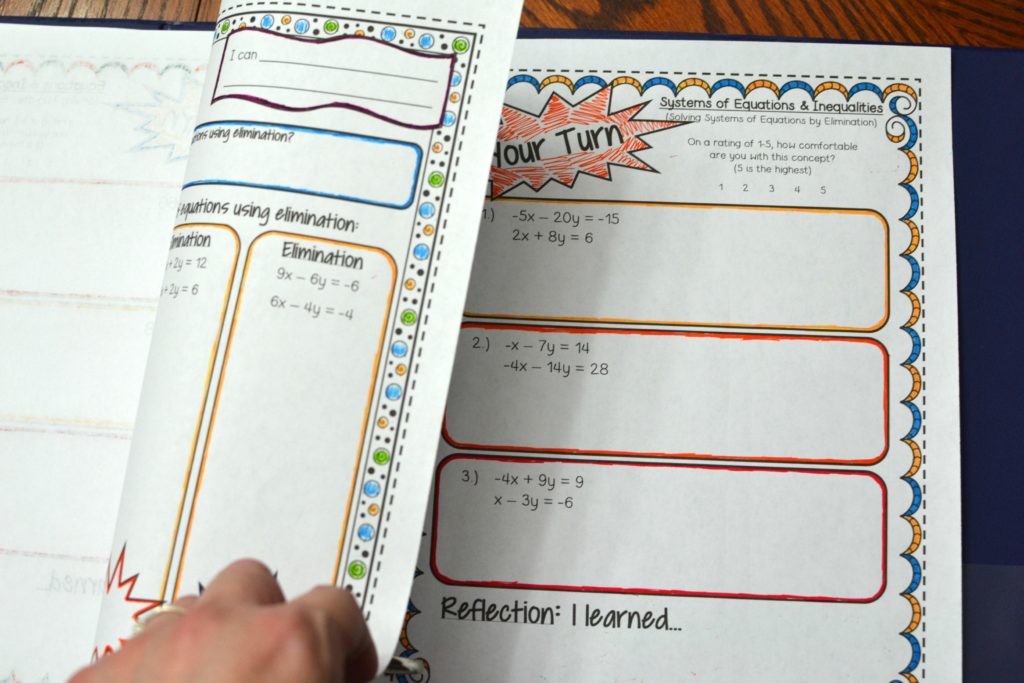 I can
using elimination?
equations using elimination:
+ 2y = 12
+ 2y = 6
Elimination
9x – 6y = -6
6x – 4y = -4
Your Turn
Systems of Equations & Inequalities
(Solving Systems of Equations by Elimination)
On a rating of 1-5, how comfortable
are you with this concept?
(5 is the highest)
1 2 3 4 5
1.) -5x – 20y = -15
2x + 8y = 6
2.) -x – 7y = 14
-4x – 14y = 28
3.) -4x + 9y = 9
x – 3y = -6
Reflection: I learned...